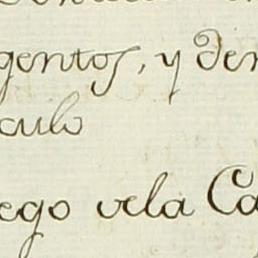 gentos, y den
culo
ego vela Ca